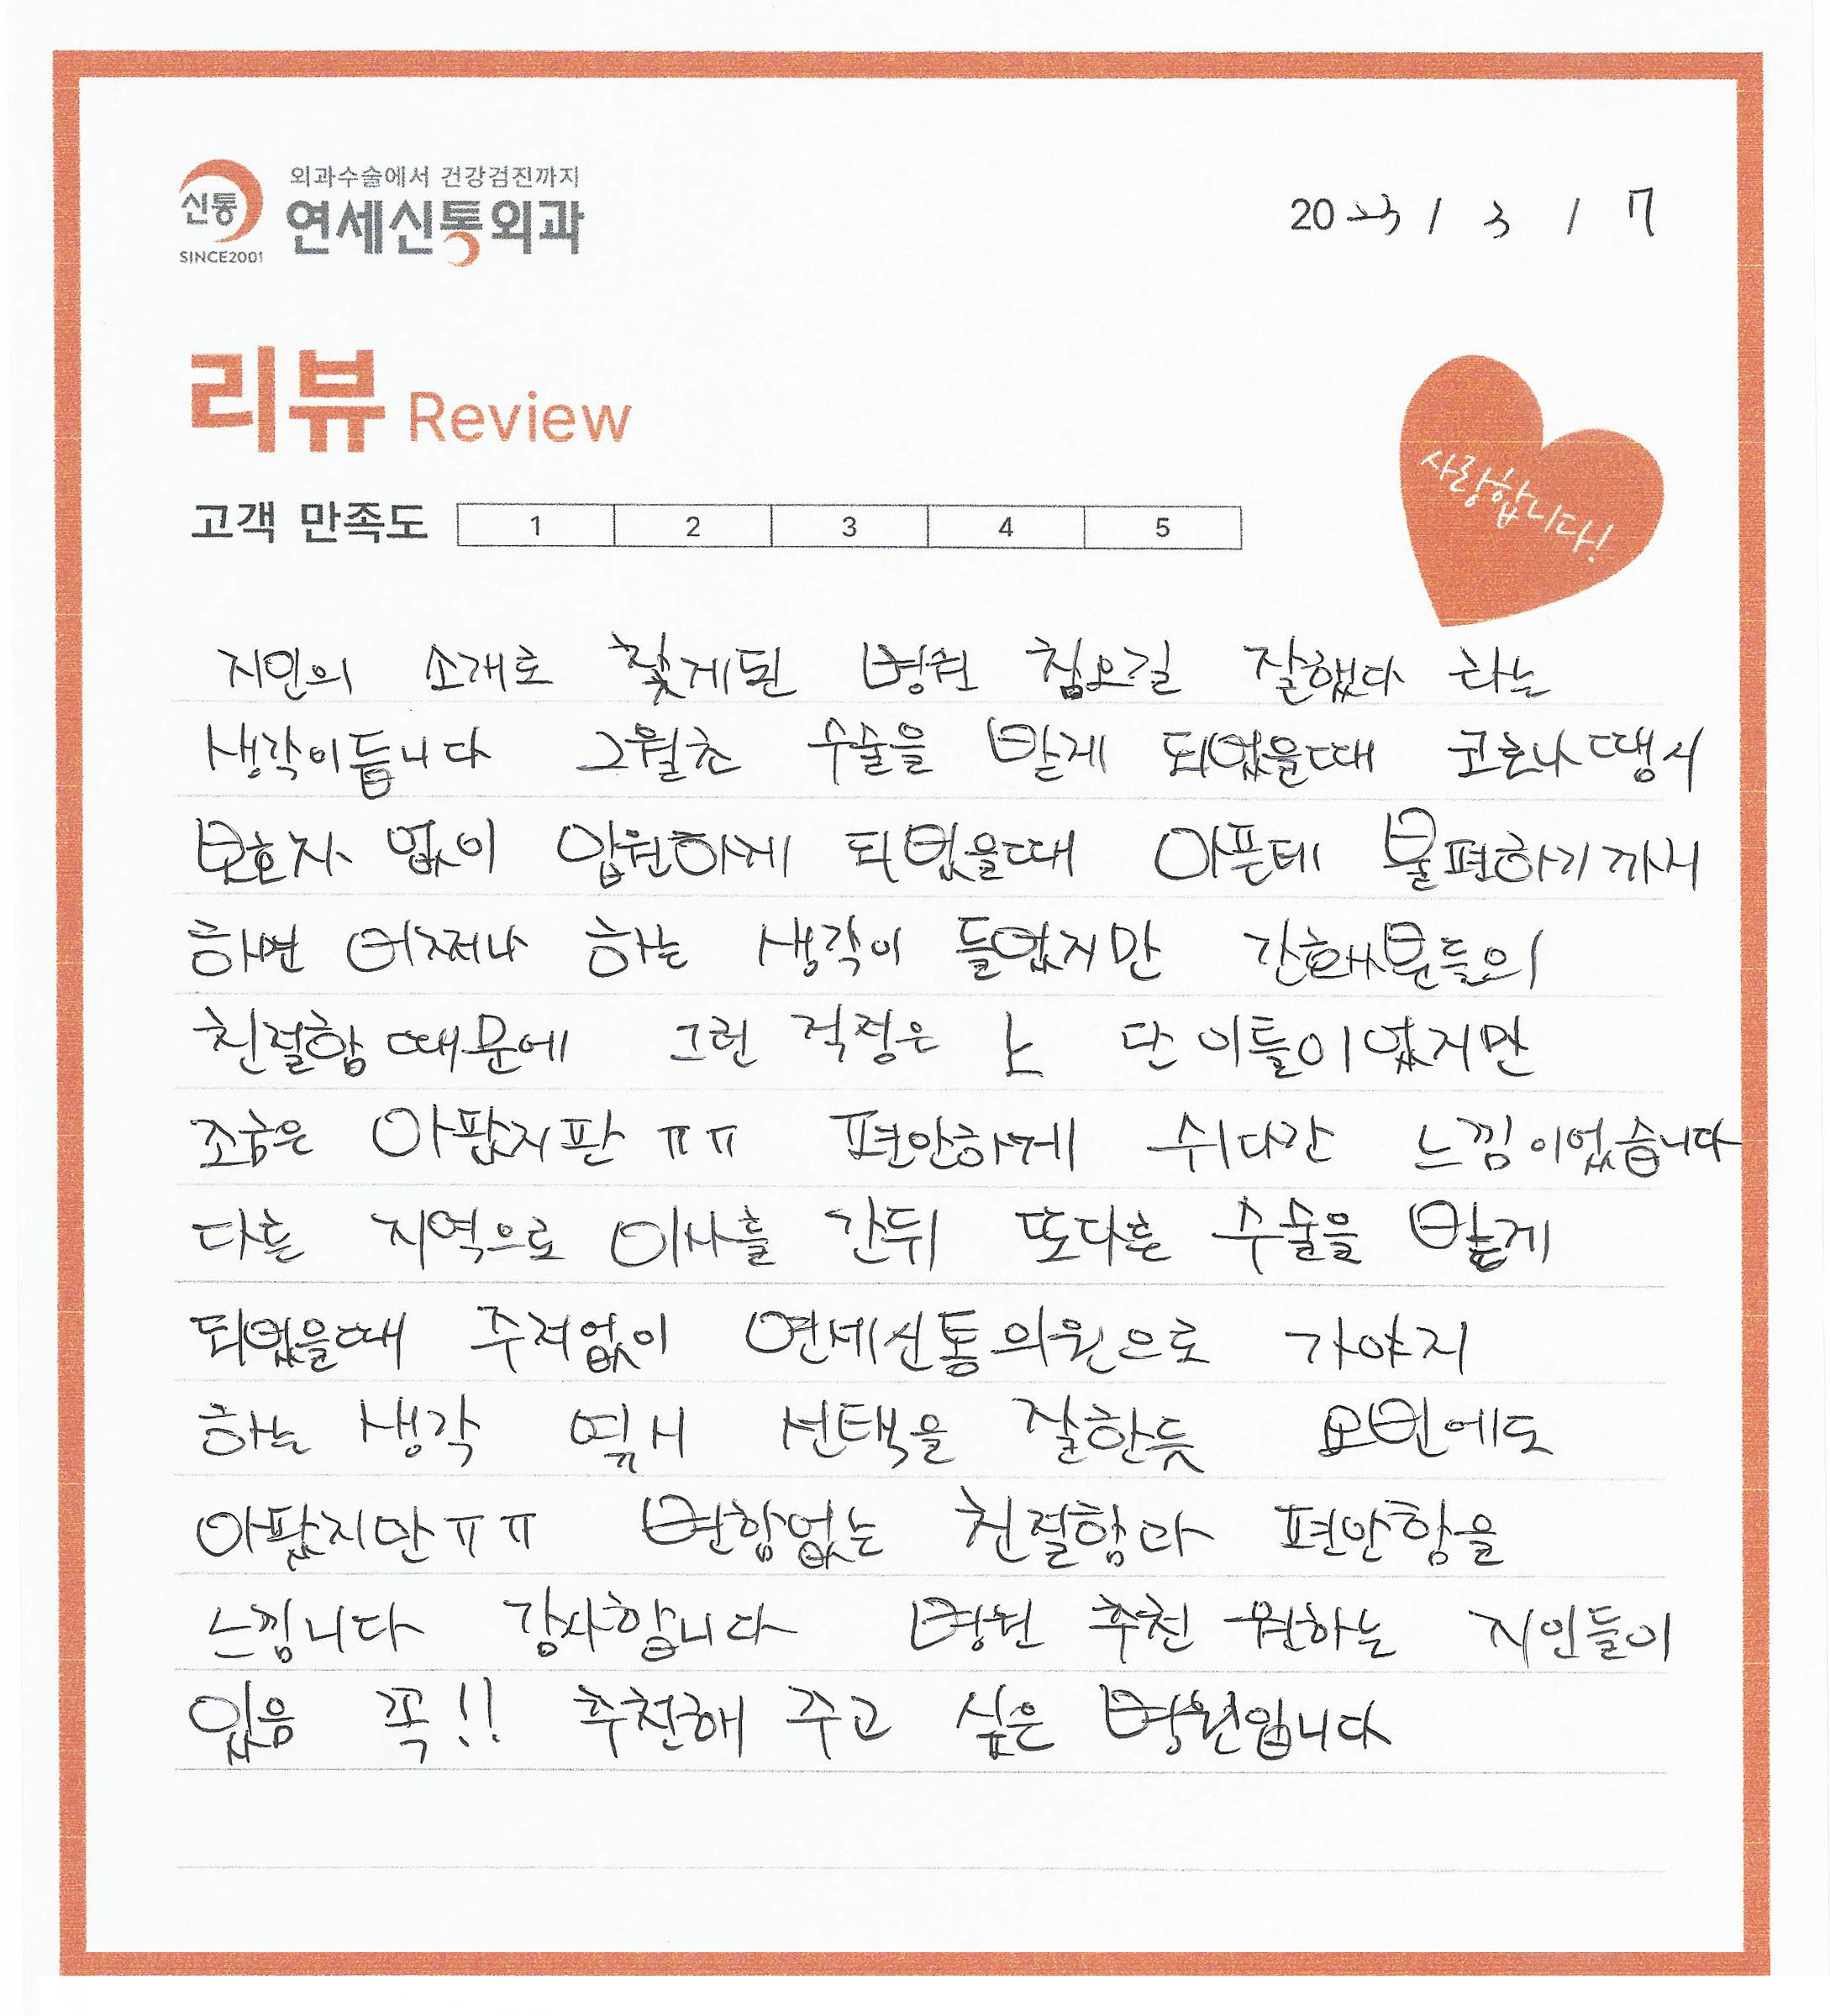 외과수술에서 건강검진까지
신통
연세신통외과
SINCE2001
2023 / 3 / 7
리뷰 Review
사랑합니다!
고객 만족도 1 2 3 4 5
지인의 소개로 찾게된 병원 참오길 잘했다 하는
생각이듭니다 2월초 수술을 받게 되었을때 코로나땜시
보호자 없이 입원하게 되었을때 아픈데 불편하기까지
하면 어쩌나 하는 생각이 들었지만 간호사분들의
친절함 때문에 그런 걱정은 노 단 이틀이였지만
조금은 아팠지만 ㅠㅠ 편안하게 쉬다간 느낌이었습니다
다른 지역으로 이사를 간뒤 또다른 수술을 받게
되었을때 주저없이 연세신통의원으로 가야지
하는 생각 역시 선택을 잘한듯 요번에도
아팠지만ㅠㅠ 변함없는 친절함과 편안함을
느낍니다 감사합니다 병원 추천 원하는 지인들이
있음 꼭!! 추천해 주고 싶은 병원입니다